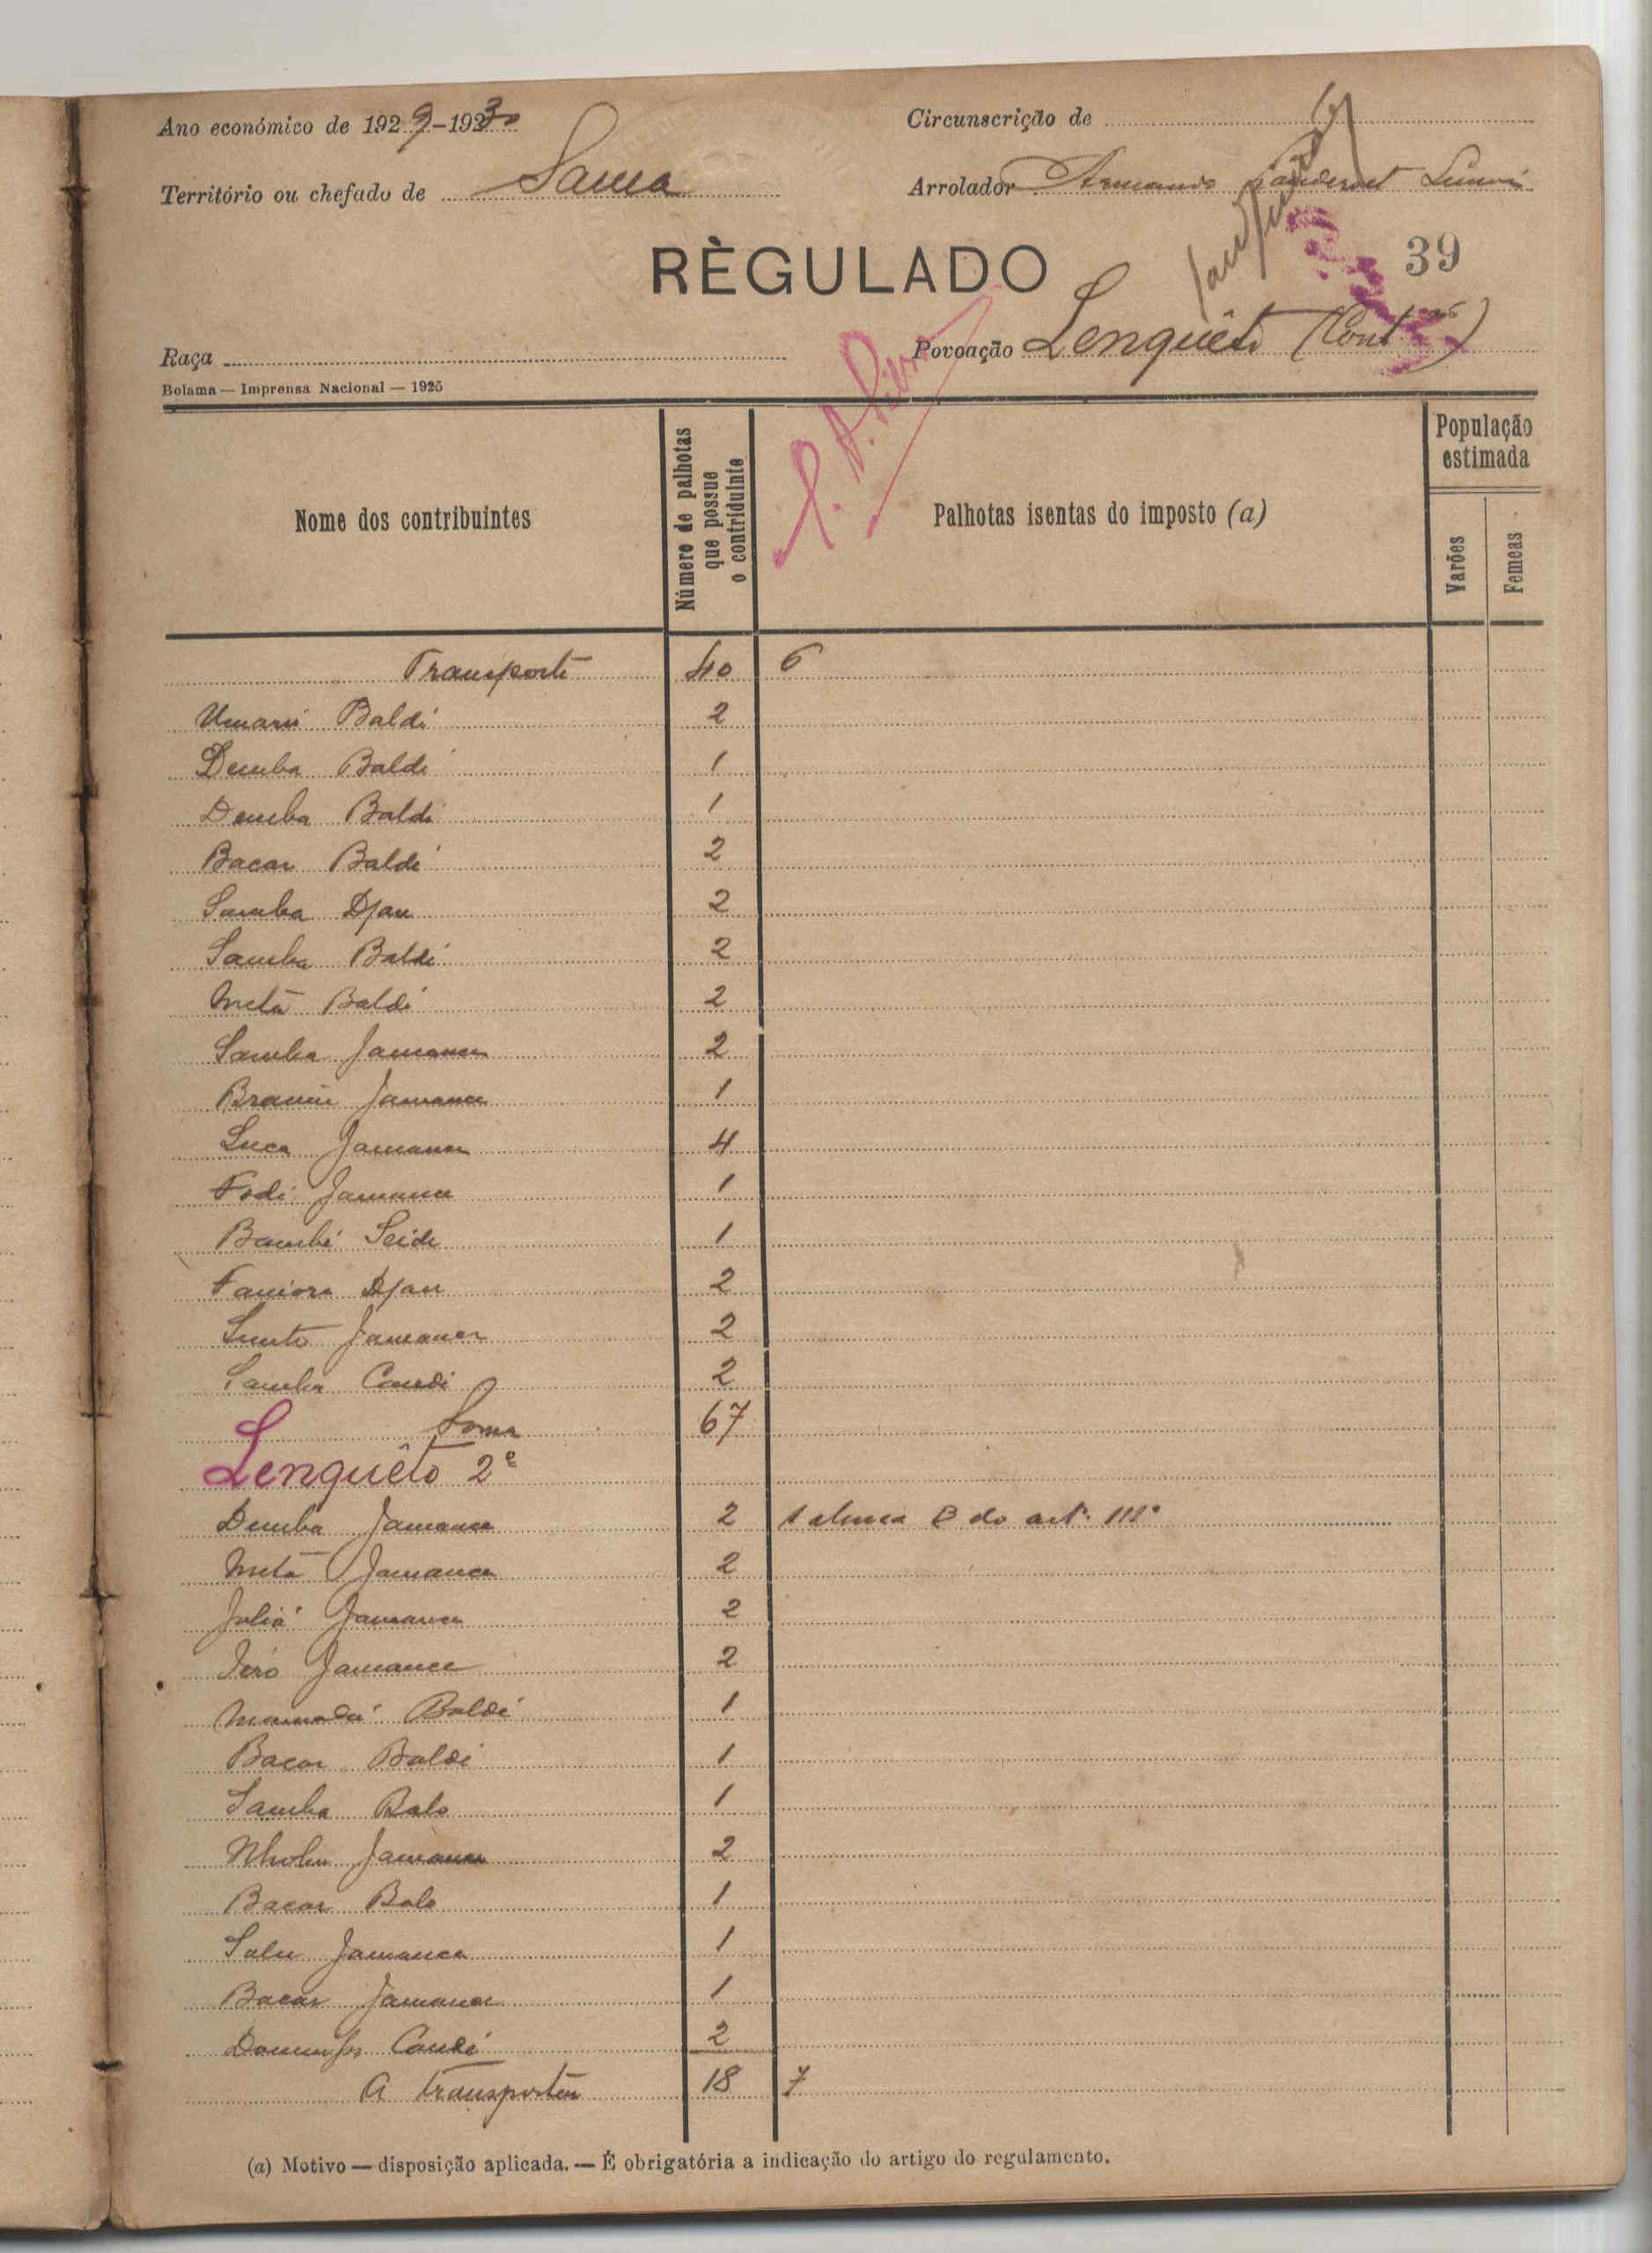 Ano económico de 1929-1930
Circunscrição de
Território ou chefado de Sama
Arrolador Armando
RÈGULADO
39
Raça
Povoação Lenquêto (Contão)
Bolama — Imprensa Nacional — 1925
Nome dos contribuintes
Número de palhotas que possue o contriduinte
Palhotas isentas do imposto (a)
População estimada
Varões
Femeas
Transporte 40 6
Umarú Baldé 2
Demba Baldé 1
Demba Baldé 1
Bacar Baldé 2
Samba Djau 2
Samba Baldé 2
Metá Baldé 2
Samba Jamanca 2
Braima Jamanca 1
Luca Jamanca 4
Fodé Jamanca 1
Bambé Seide 1
Famora Djau 2
Sunto Jamanca 2
Samba Candé 2
Soma 67
Lenquêto 2º
Demba Jamanca 2 1 alinea B do artº. 111º
Metá Jamanca 2
Juliá Jamanca 2
Jeró Jamanca 2
Mamadú Baldé 1
Bacar Baldé 1
Samba Balo 1
Jamanca 2
Bacar Balo 1
Salu Jamanca 1
Bacar Jamanca 1
Domingos Candé 2
A transportar 18 7
(a) Motivo — disposição aplicada. — É obrigatória a indicação do artigo do regulamento.